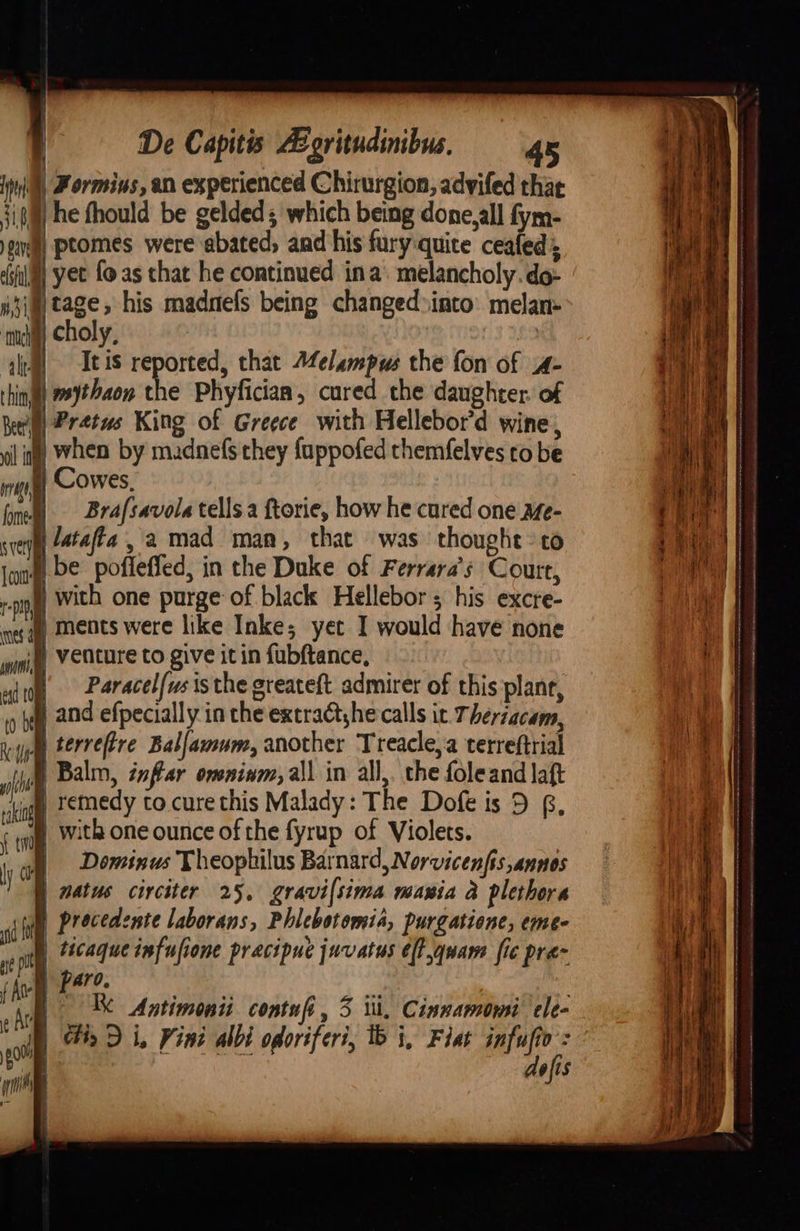 De Capitis Ægritudinibus. 45
Formius, an experienced Chirurgion, advised that
he ſhould be gelded; which being done, all ſym-
ptomes were abated, and his fury quite ceaſed;
yet ſo as that he continued in a melancholy do-
tage, his madneſs being changed into melan-
choly.
It is reported, that Melampus the ſon of A-
mythaon the Phyſician, cured the daughter of
Pretus King of Greece with Hellebor'd wine,
when by madneſs they ſuppoſed themſelves to be
Cowes.
Braſsavola tells a ſtorie, how he cured one Me-
lataſta, a mad man, that was thought to
be poſſeſſed, in the Duke of Ferrara's Court,
with one purge of black Hellebor; his excre-
ments were like Inke; yet I would have none
venture to give it in ſubſtance.
Paracelſus is the greateſt admirer of this plant,
and eſpecially in the extract, he calls it Theriacam,
terreſtre Balſamum, another Treacle, a terreſtrial
Balm, inſtar omnium, all in all, the ſole and laſt
remedy to cure this Malady: The Doſe is ℈ ß.
with one ounce of the ſyrup of Violets.
Dominus Theophilus Barnard, Norvicenſis, annos
natus circiter 25. graviſsima mania à plethora
precedente laborans, Phlebotomiâ, purgatione, eme-
ticaque infuſione præcipuè juvatus eſt, quam ſic præ-
paro.
℞ Antimonii contuſi, ℥ iii. Cinnamomi ele-
cti, ℈ i. Vini albi odoriferi, ℔ i. Fiat infuſio:
doſis